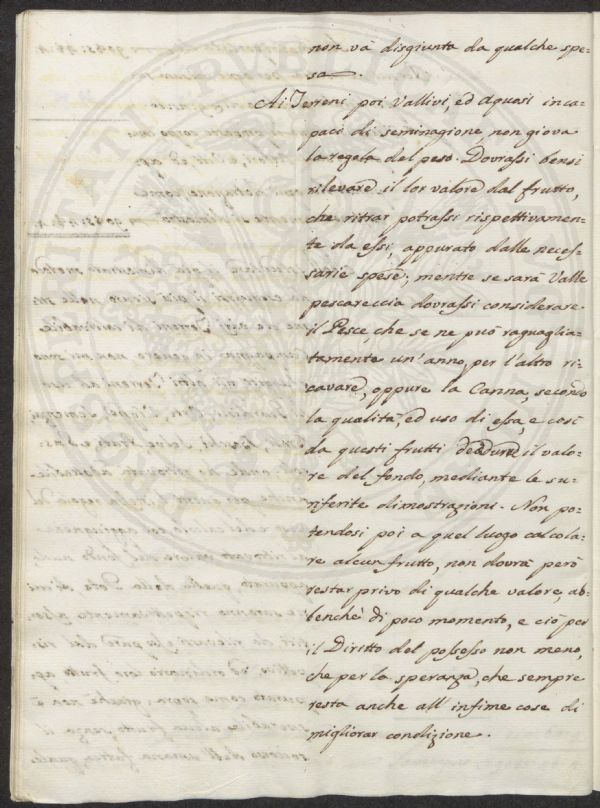 non và disgiunta da qualche spe-
sa.
Ai Terreni poi Vallivi, ed aquasi inca-
paci di seminagione, non giova
la regola del peso. Dovrassi bensì
rilevare il lor valore dal frutto,
che ritrar potrassi rispettivamen-
te da essi, appurato dalle neces-
sarie spese; mentre se sarà Valle
pescareccia dovrassi considerare
il Pesce, che se ne può raguaglia-
tamente un' anno, per l'altro ri-
cavare, oppure la Canna, secondo
la qualità, ed uso di essa, e così
da questi frutti dedurre il valo-
re del fondo, mediante le su-
riferite dimostrazioni. Non po-
tendosi poi a quel luogo calcola-
re alcun frutto, non dovrà però
restar privo di qualche valore, ab-
benchè di poco momento, e ciò per
il Diritto del possesso non meno,
che per la speranza, che sempre
resta anche all' infime cose di
migliorar condizione.